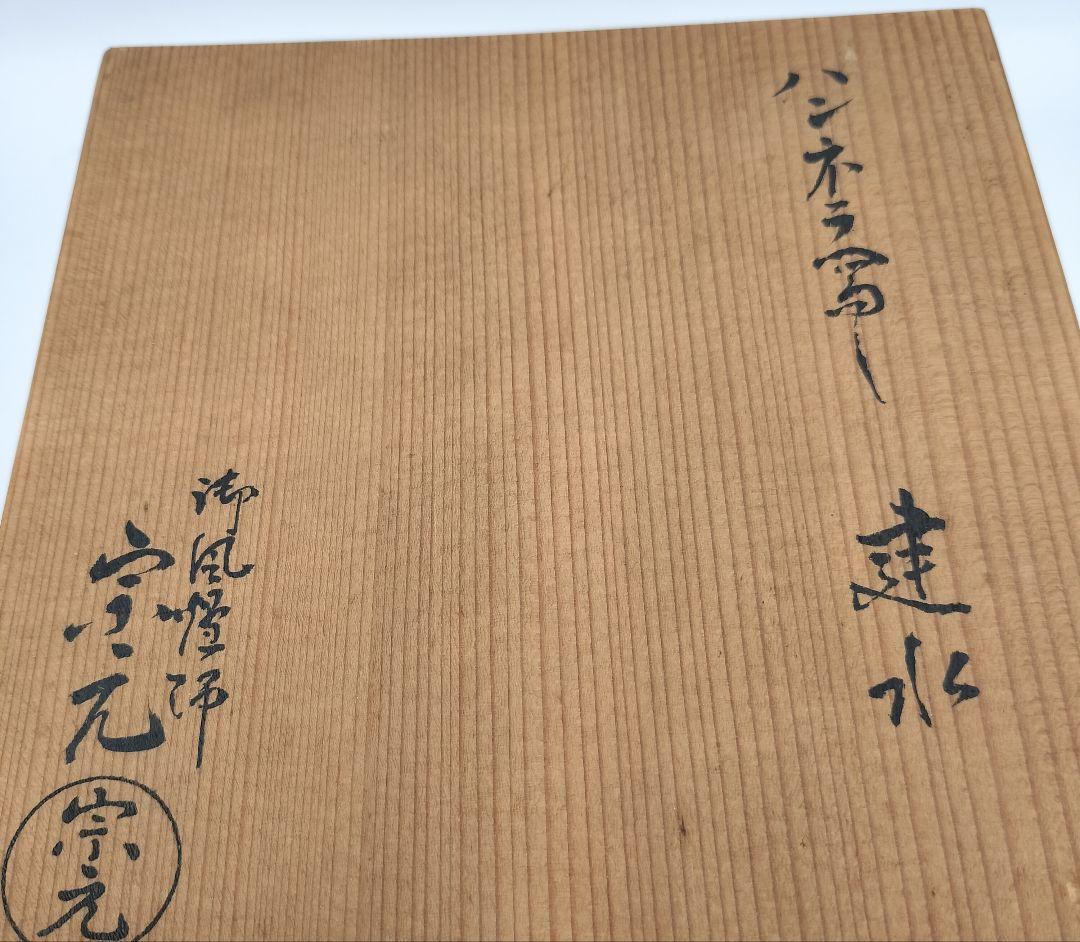 ハンネラ写し
建水
御風爐師
宗元
宗元